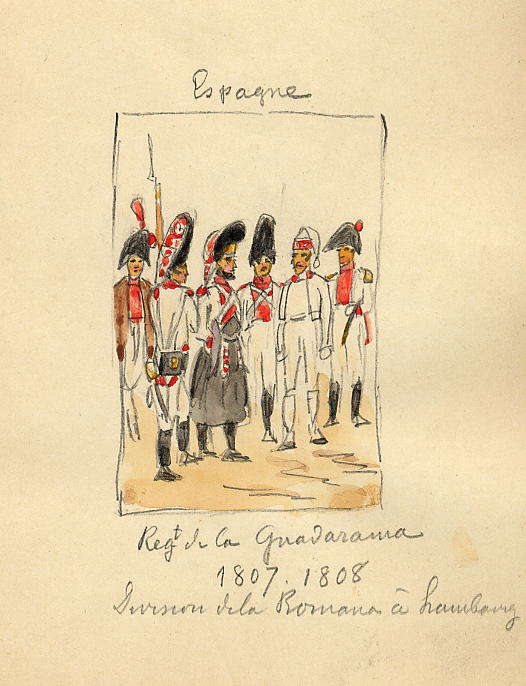 Espagne
Regt de la Guadarama
1807. 1808
Division de la Romana à Hambourg